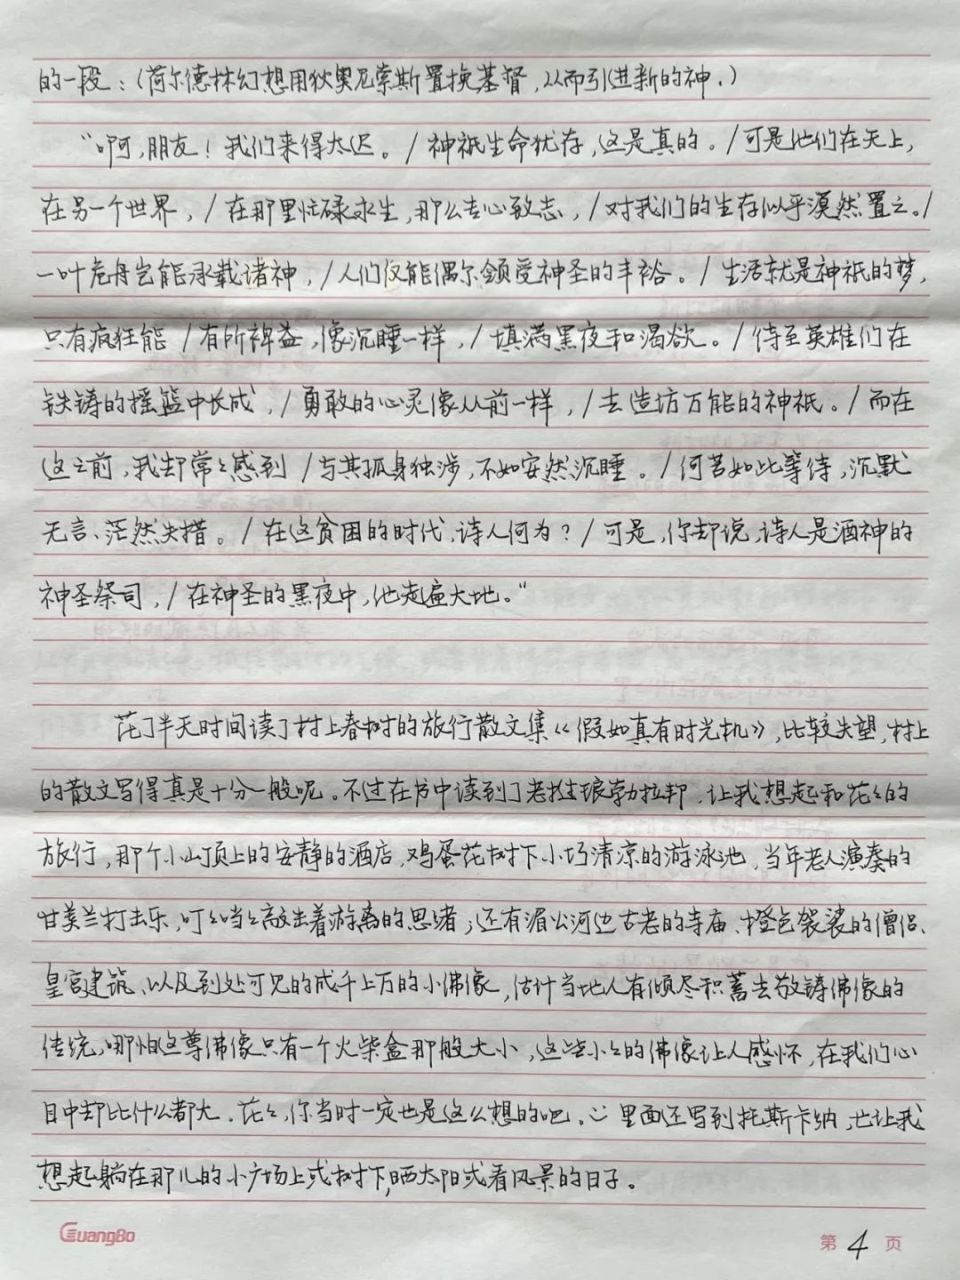 的一段：（荷尔德林幻想用狄奥尼索斯置换基督，从而引进新的神。）
“啊，朋友！我们来得太迟。/神祇生命犹存，这是真的。/可是他们在天上，
在另一个世界，/在那里忙碌求生，那么专心致志，/对我们的生存似乎漠然置之。/
一叶危舟岂能承载诸神，/人们仅能偶尔领受神圣的丰裕。/生活就是神祇的梦，
只有疯狂能/有所裨益，像沉睡一样，/填满黑夜和渴欲。/待至英雄们在
铁铸的摇篮中长成，/勇敢的心灵像从前一样，/去造访万能的神祇。/而在
这之前，我却常々感到/与其孤身独涉，不如安然沉睡。/何苦如此等待，沉默
无言、茫然失措。/在这贫困的时代，诗人何为？/可是，你却说，诗人是酒神的
神圣祭司，/在神圣的黑夜中，他走遍大地。“
花了半天时间读了村上春树的旅行散文集《假如真有时光机》，比较失望，村上
的散文写得真是十分一般呢。不过在书中读到了老挝琅勃拉邦，让我想起和花々的
旅行，那个小山顶上的安静的酒店，鸡蛋花树下小巧清凉的游泳池，当年老人演奏的
甘美兰打击乐，叮々当々敲击着游离的思绪；还有湄公河边古老的寺庙、橙色袈裟的僧侣、
皇宫建筑、以及到处可见的成千上万的小佛像，估计当地人有倾尽积蓄去敬铸佛像的
传统，哪怕这尊佛像只有一个火柴盒那般大小，这些小々的佛像让人感怀，在我们心
目中却比什么都大。花々，你当时一定也是这么想的吧。里面还写到托斯卡纳，也让我
想起躺在那儿的小广场上或树下，晒太阳或看风景的日子。
GuangBo
第 4 页